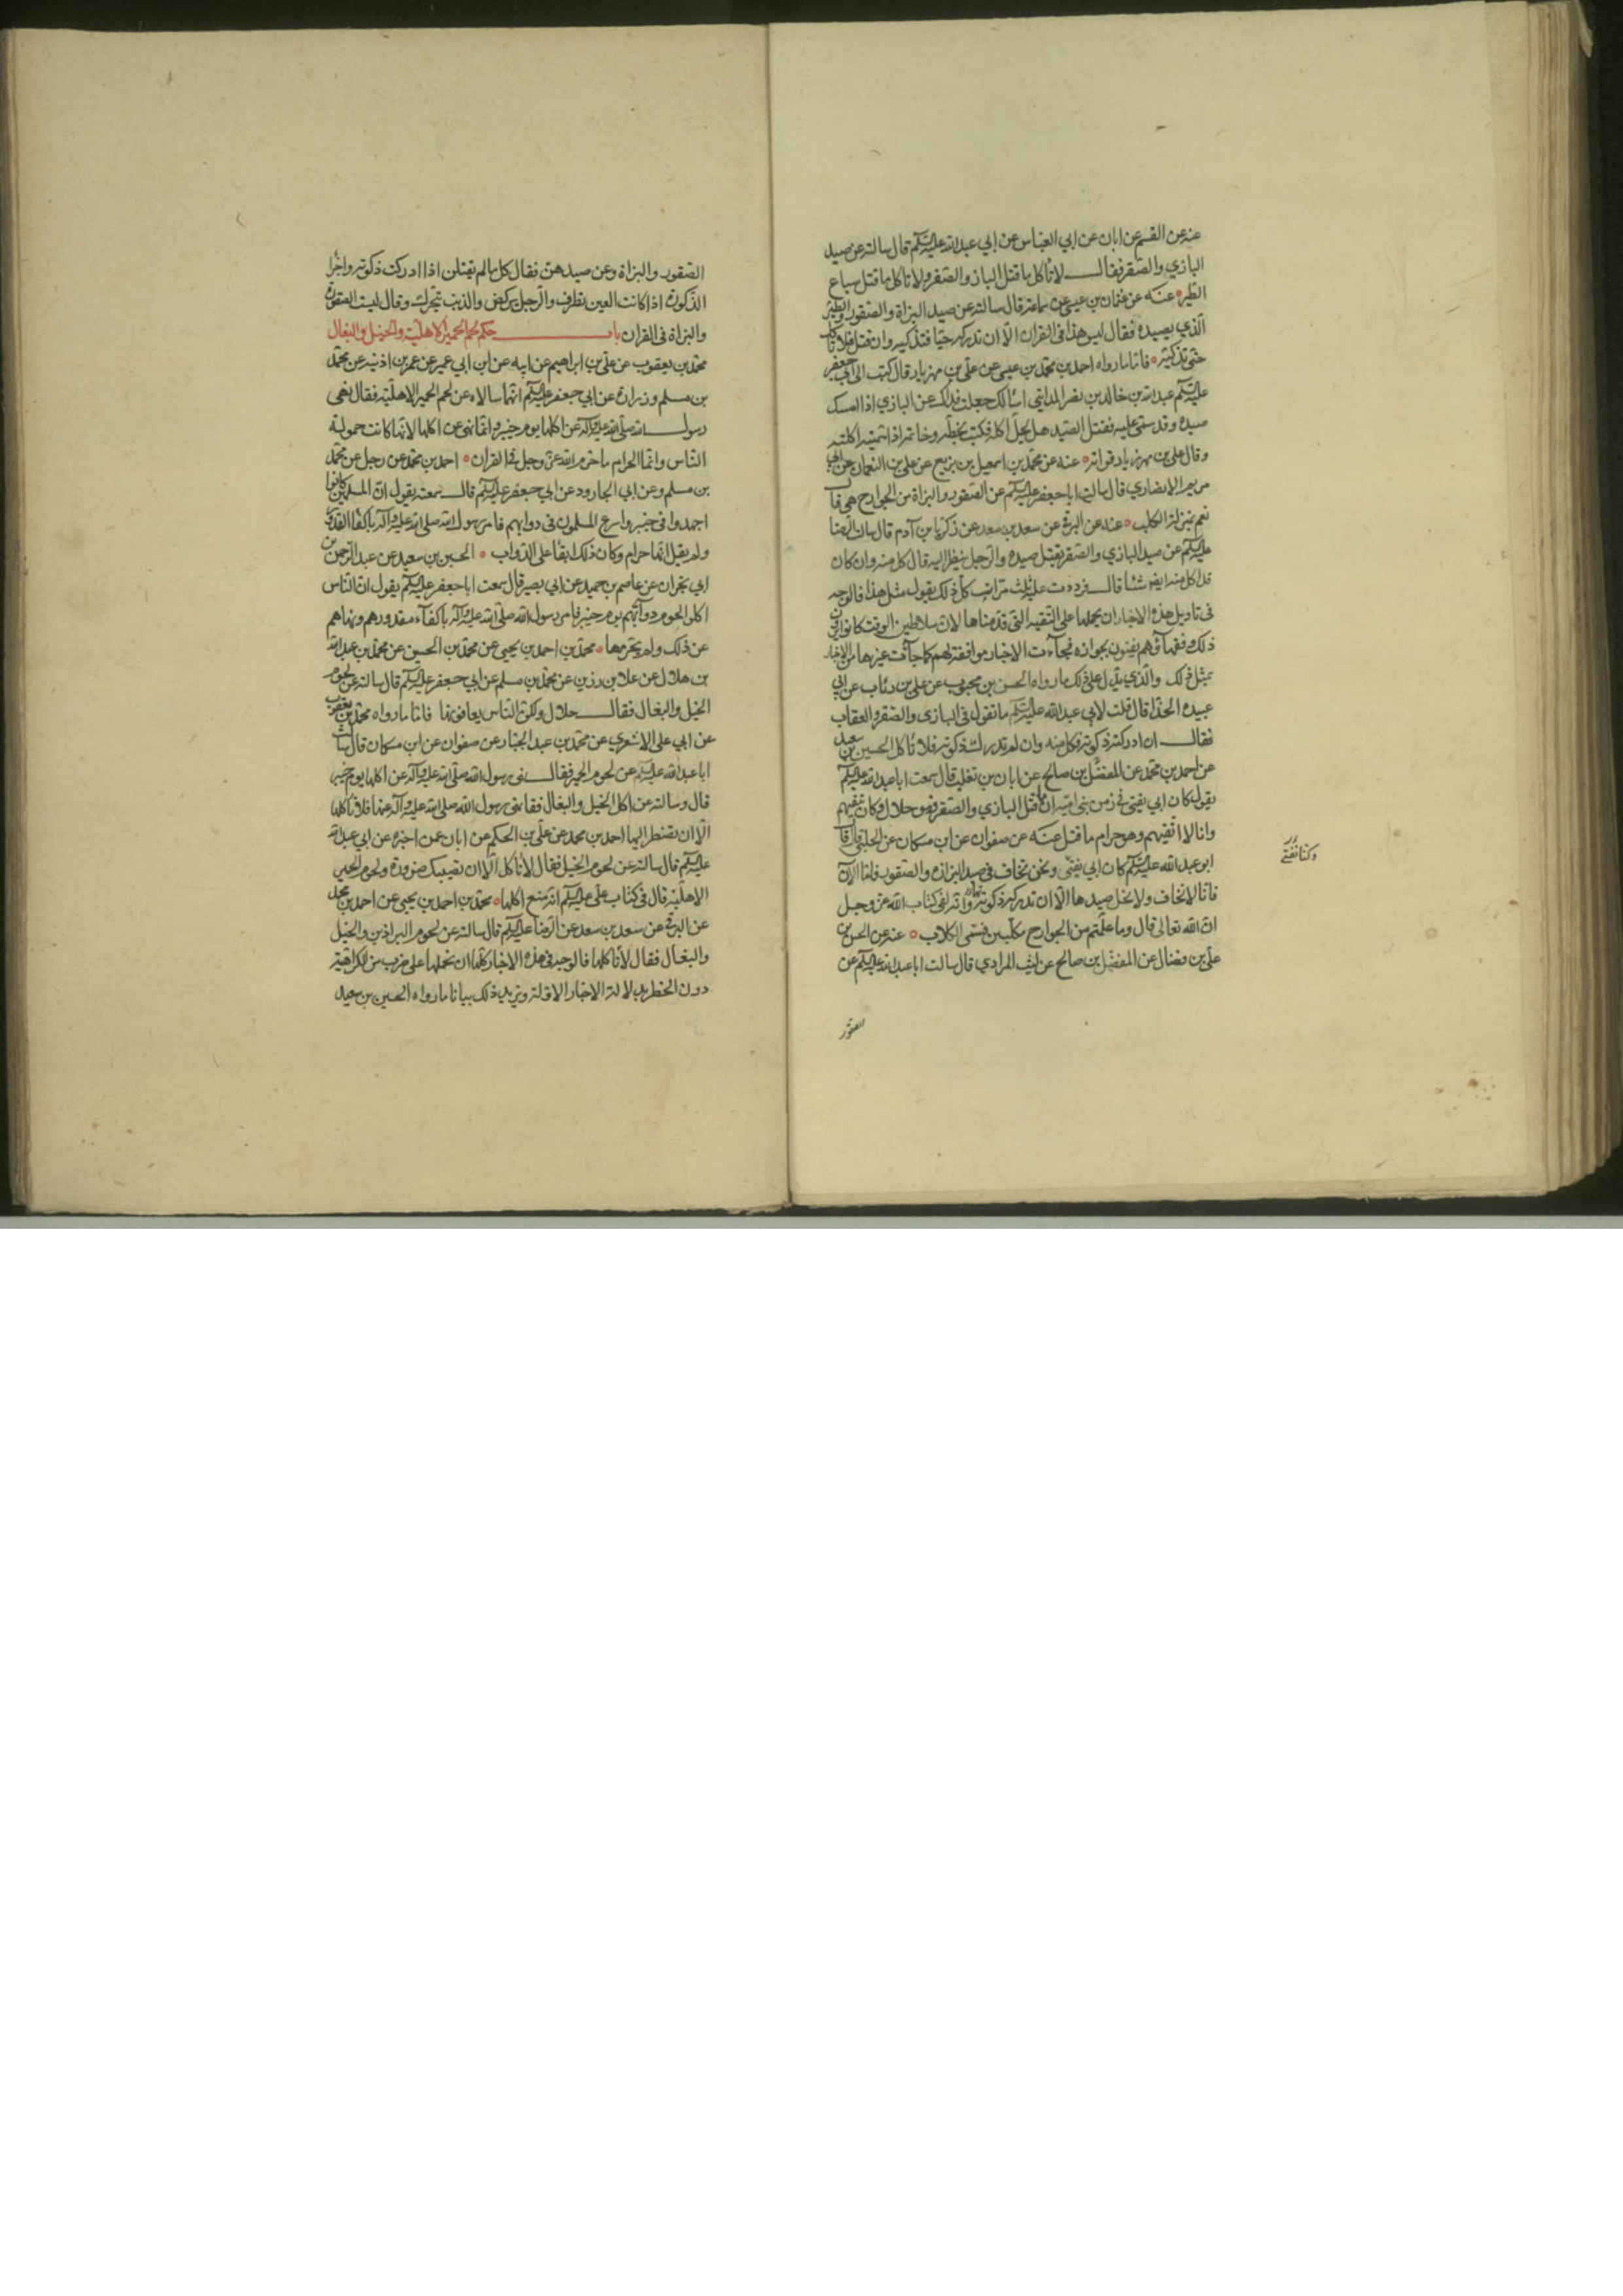 عنه عن القسم عن ابان عن ابي العباس عن ابي عبد الله عليه السلم قال سالته عن صيد
البازي والصقر فقال لا تاكل ما قتل الباز والصقر ولا تاكل ما قتل سباع
الطير عنه عن عثمان بن عيسى عن سماعه قال سالته عن صيد البزاة والصقور والطير
الذي يصيده فقال ليس هذا في القران الا ان تدركه حيا فتذكيه وان قتل فلا تاكل
حتى تذكيه فاما ما رواه احمد بن محمد بن عيسى عن علي بن مهزيار قال كتب الى ابي جعفر
عليه السلم عبد الله بن خالد بن نصر المدايني اسالك جعلت فداك عن البازي اذا امسك
صيده وقد سمي عليه فقتل الصيد هل يحل اكله فكتب بخطه وخاتمه اذا سميته اكلته
وقال علي بن مهزيار قراته عنه عن محمد بن اسمعيل بن بزيع عن علي بن النعمان عن ابي
مريم الانصاري قال سالت ابا جعفر عليه السلم عن الصقور والبزاة من الجوارح هي قال
نعم بمنزلة الكلب عنه عن البرقي عن سعد بن سعد عن زكريا بن آدم قال سالت الرضا
عليه السلم عن صيد البازي والصقر يقتل صيده والرجل ينظر اليه قال كل منه وان كان
قد اكل منه ايض شئا قال فرددت عليه ثلث مرات كل ذلك يقول مثل هذا فالوجه
في تاويل هذه الاخبار ان نحملها على التقيه التي قدمناها لان سلاطين الوقت كانوا يرون
ذلك وفقهاؤهم يفتون بجوازه فجاءت الاخبار موافقة لهم كما جاءت غيرها من الاخبار
بمثل ذلك والذي يدل على ذلك ما رواه الحسن بن محبوب عن علي بن رئاب عن ابي
عبيده الحذا قال قلت لابي عبد الله عليه السلم ما تقول في البازي والصقر والعقاب
فقال ان ادركت ذكوته فكل منه وان لم تدرك ذكوته فلا تاكل الحسين بن سعيد
عن احمد بن محمد عن المفضل بن صالح عن ابان بن تغلب قال سمعت ابا عبد الله عليه السلم
يقول كان ابي يفتي في زمن بني امية ان ما قتل البازي والصقر فهو حلال وكان يتقيهم
وانا لا اتقيهم وهو حرام ما قتل عنه عن صفوان عن ابن مسكان عن الحلبي قال قال
ابو عبد الله عليه السلم كان ابي يفتي ونحن نخاف في صيد البزاه والصقور فاما الان
فانا لا نخاف ولا نحل صيدها الا ان تدرك ذكوته وانه لفي كتاب الله عز وجل
ان الله تعالى قال وما علمتم من الجوارح مكلبين فسمى الكلاب عنه عن الحسن بن
علي بن فضال عن المفضل بن صالح عن ليث المرادي قال سالت ابا عبد الله عليه السلم عن
وكنا نفتي
الصقور
الصقور والبزاة وعن صيدهن فقال كل ما لم يقتلن اذا ادركت ذكوته واخر
الذكوة اذا كانت العين تطرف والرجل يركض والذنب تتحرك وقال ليست الصقور
والبزاة في القران باب حكم لحم الحمير الاهلية والخيل والبغال
محمد بن يعقوب عن علي بن ابراهيم عن ابيه عن ابن ابي عمير عن عمر بن اذينه عن محمد
بن مسلم وزرارة عن ابي جعفر عليه السلم انهما سالاه عن لحم الحمير الاهلية فقال نهى
رسول الله صلى الله عليه واله عن اكلها يوم خيبر وانما نهى عن اكلها لانها كانت حمولة
الناس وانما الحرام ما حرم الله عز وجل في القران احمد بن محمد عن رجل عن محمد
بن مسلم وعن ابي الجارود عن ابي جعفر عليه السلم قال سمعته يقول ان المسلمين كانوا
اجهدوا في خيبر واسرع المسلمون في دوابهم فامر رسول الله صلى الله عليه واله باكفا القدور
ولم يقل انها حرام وكان ذلك ابقا على الدواب الحسين بن سعيد عن عبد الرحمن بن
ابي نجران عن عاصم بن حميد عن ابي بصير قال سمعت ابا جعفر عليه السلم يقول ان الناس
اكلوا لحوم دوابهم يوم خيبر فامر رسول الله صلى الله عليه واله باكفاء قدورهم ونهاهم
عن ذلك ولم يحرمها محمد بن احمد بن يحيى عن محمد بن الحسين عن محمد بن عبد الله
بن هلال عن علا بن رزين عن محمد بن مسلم عن ابي جعفر عليه السلم قال سالته عن لحوم
الخيل والبغال فقال حلال ولكن الناس يعافونها فاما ما رواه محمد بن يعقوب
عن ابي علي الاشعري عن محمد بن عبد الجبار عن صفوان عن ابن مسكان قال سالت
ابا عبد الله عليه السلم عن لحوم الحمير فقال نهى رسول الله صلى الله عليه واله عن اكلها يوم خيبر
قال وسالته عن اكل الخيل والبغال فقال نهى رسول الله صلى الله عليه واله عنها فلا تاكلها
الا ان تضطر اليها احمد بن محمد عن علي بن الحكم عن ابان عمن اخبره عن ابي عبد الله
عليه السلم قال سالته عن لحوم الخيل فقال لا تاكل الا ان تصيبك ضرورة ولحوم الحمير
الاهلية قال في كتاب علي عليه السلم انه منع اكلها محمد بن احمد بن يحيى عن احمد بن محمد
عن البرقي عن سعد بن سعد عن الرضا عليه السلم قال سالته عن لحوم البراذين والخيل
والبغال فقال لا تاكلها فالوجه في هذه الاخبار كلها ان نحملها على ضرب من الكراهية
دون الحظر بدلالة الاخبار الاولة ويزيد ذلك بيانا ما رواه الحسين بن سعيد